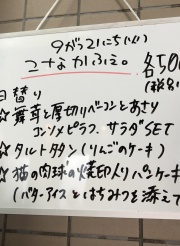 9がつ21にち(火)
こなかふぇ。
各50
(税別
日替り
☆舞茸と厚切りベーコンとあさり
コンソメピラフ、サラダSET
☆タルトタタン(りんごのケーキ)
☆猫の肉球の焼印入りパンケーキ
(バターアイスとはちみつを添えて